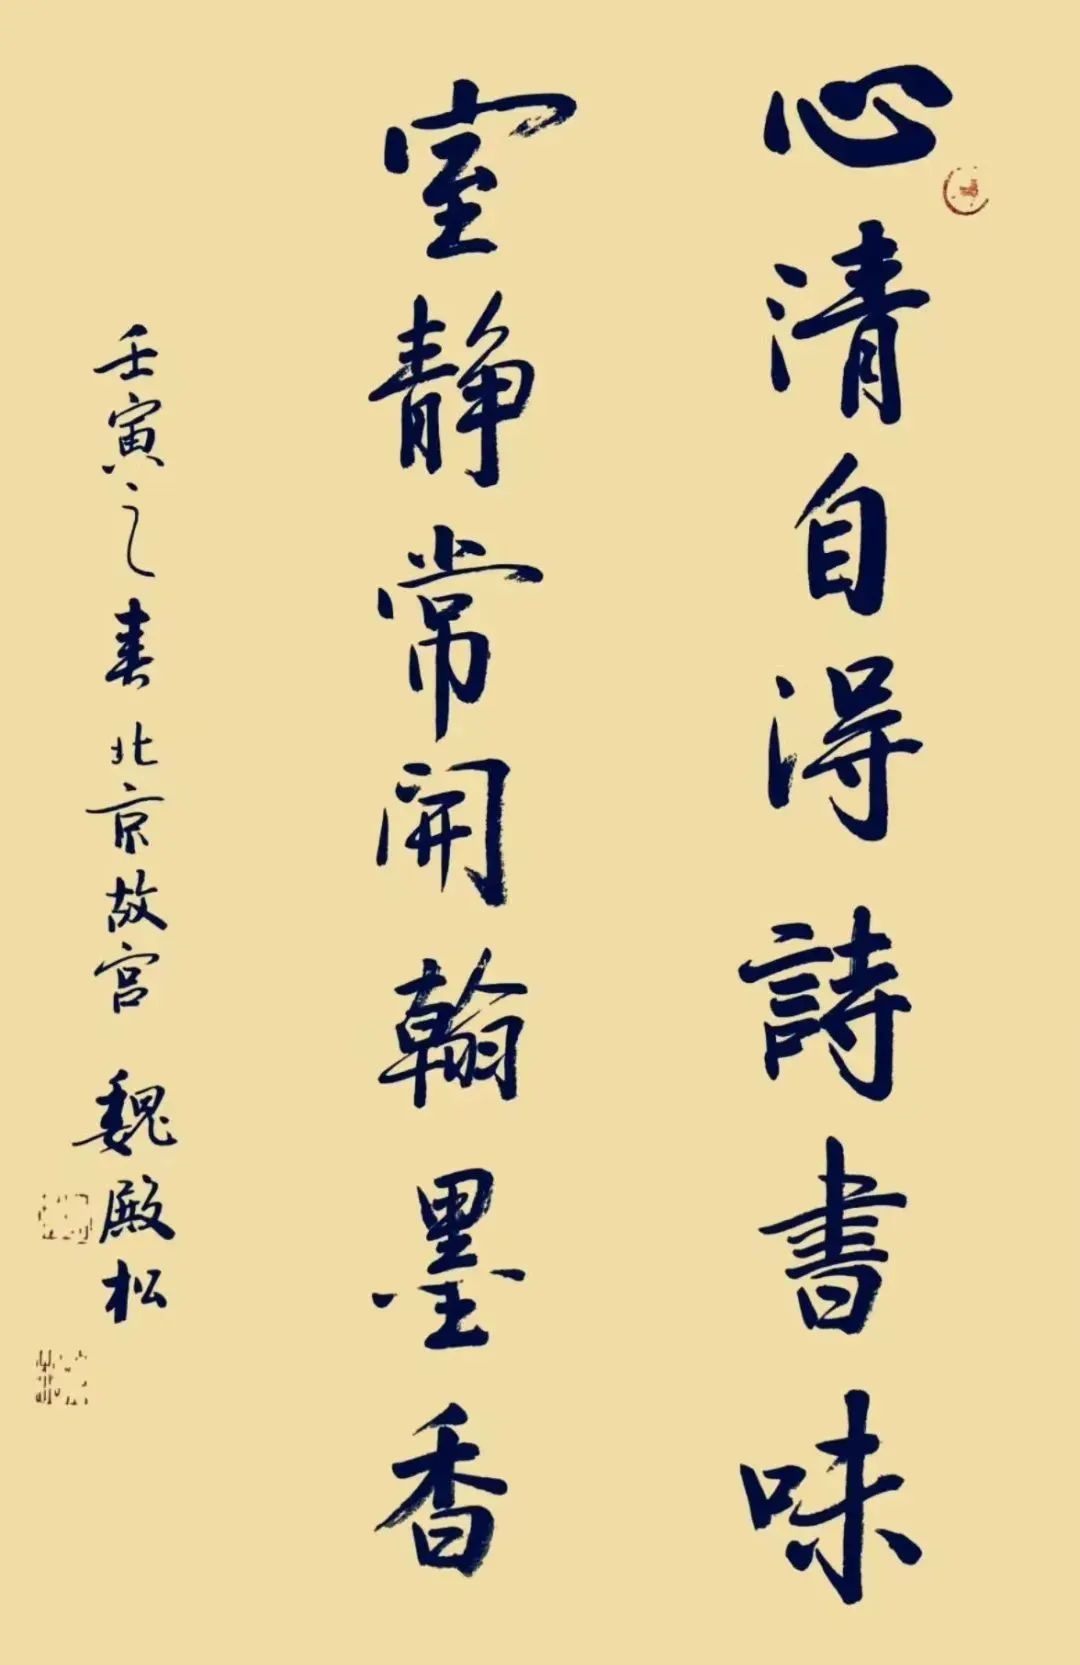 心清自得詩書味
室靜常開翰墨香
壬寅之春北京故宫 魏殿松